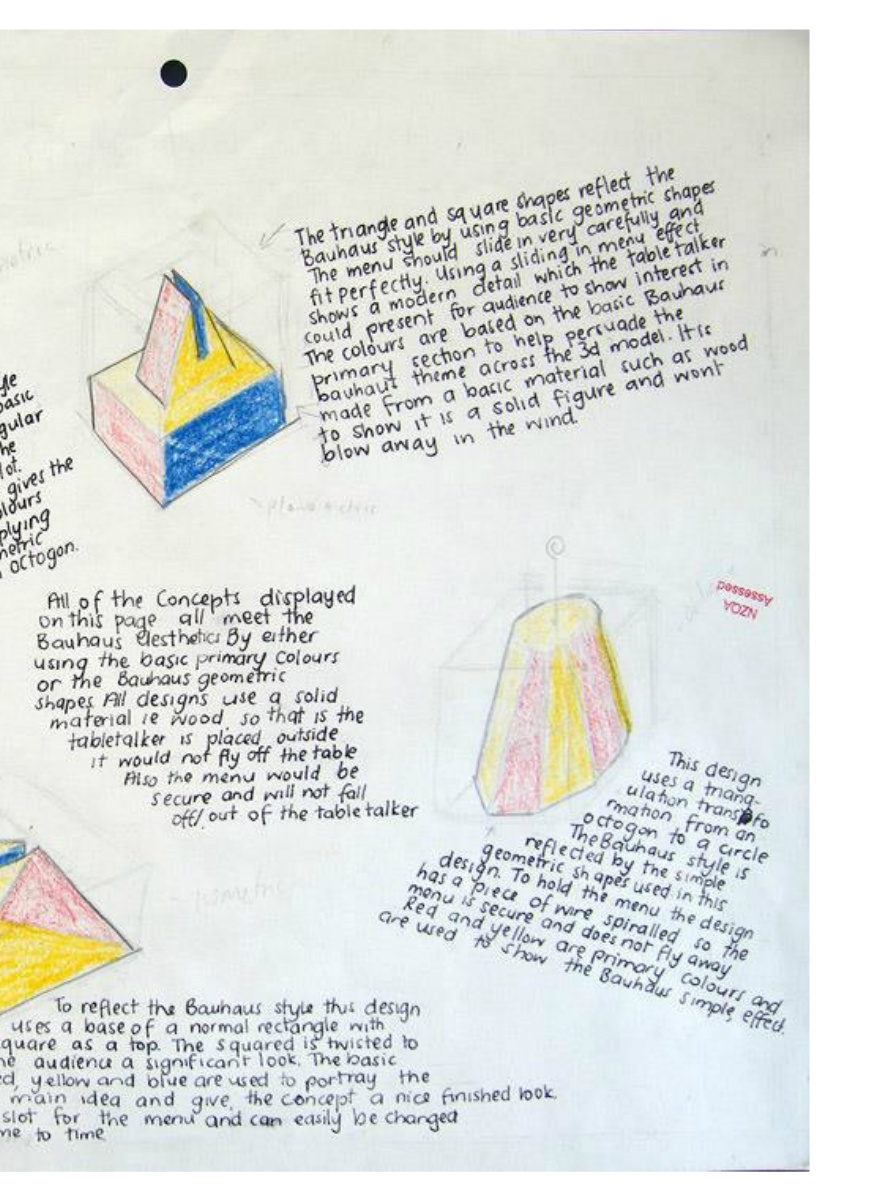 The triangle and square shapes reflect the
Bauhaus style by using basic geometric shapes
The menu should slide in very carefully and
fit perfectly. Using a sliding in menu effect
shows a modern detail which the table talker
could present for audience to show interest in
The colours are based on the basic Bauhaus
primary section to help persuade the
bauhaus theme across the 3d model. It is
made from a basic material such as wood
to show it is a solid figure and wont
blow away in the wind.
gular
he
lot.
gives the
olours
plying
metric
octogon.
planometric
All of the Concepts displayed
on this page all meet the
Bauhaus Aesthetics By either
using the basic primary Colours
or the Bauhaus geometric
shapes All designs use a solid
material ie wood, so that is the
tabletalker is placed outside
it would not fly off the table
Also the menu would be
secure and will not fall
off/out of the table talker
NZQA
Assessed
This design
uses a triang-
ulation transfo
rmation from an
octogon to a circle
The Bauhaus style is
reflected by the simple
geometric shapes used in this
design. To hold the menu the design
has a piece of wire spiralled so the
menu is secure and does not fly away
Red and yellow are primary colours and
are used to show the Bauhaus simple, effect.
isometric
To reflect the Bauhaus style this design
uses a base of a normal rectangle with
quare as a top. The squared is twisted to
he audience a significant look. The basic
ed, yellow and blue are used to portray the
main idea and give, the concept a nice finished look.
slot for the menu and can easily be changed
me to time